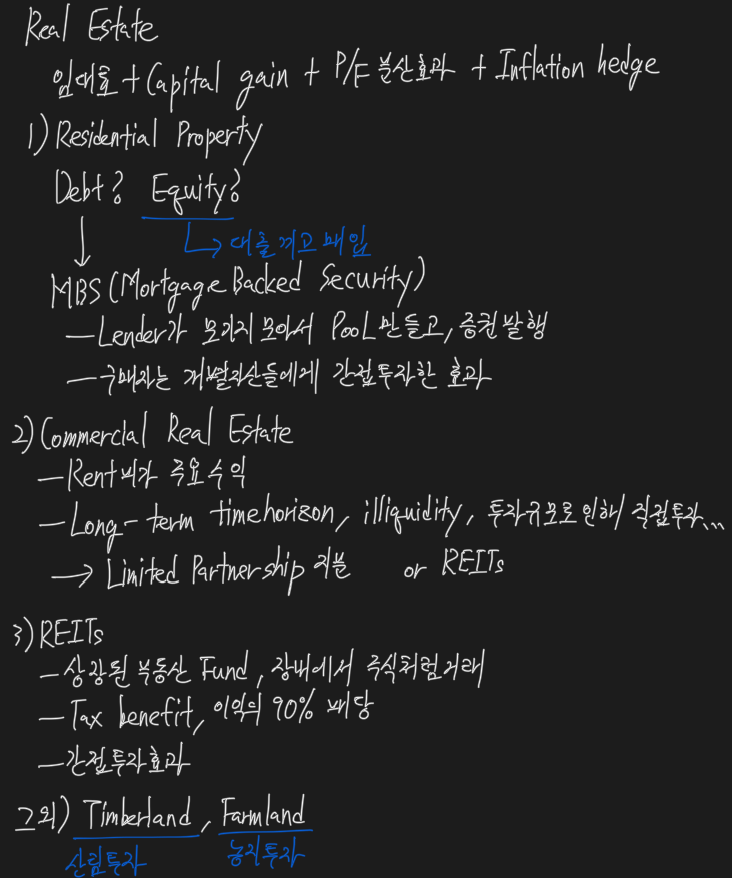 Real Estate
임대료 + Capital gain + P/F 분산효과 + Inflation hedge
1) Residential Property
Debt? Equity?
↓ ↳ 대출끼고 매입
MBS (Mortgage Backed Security)
— Lender가 모기지 모아서 Pool 만들고, 증권발행
— 구매자는 개별자산들에게 간접투자한 효과
2) Commercial Real Estate
— Rent비가 주요 수익
— Long-term time horizon, illiquidity, 투자규모로 인해 직접투자...
→ Limited Partnership 지분 or REITs
3) REITs
— 상장된 부동산 Fund, 장내에서 주식처럼 거래
— Tax benefit, 이익의 90% 배당
— 간접투자효과
그 외) Timberland, Farmland
산림투자 농지투자